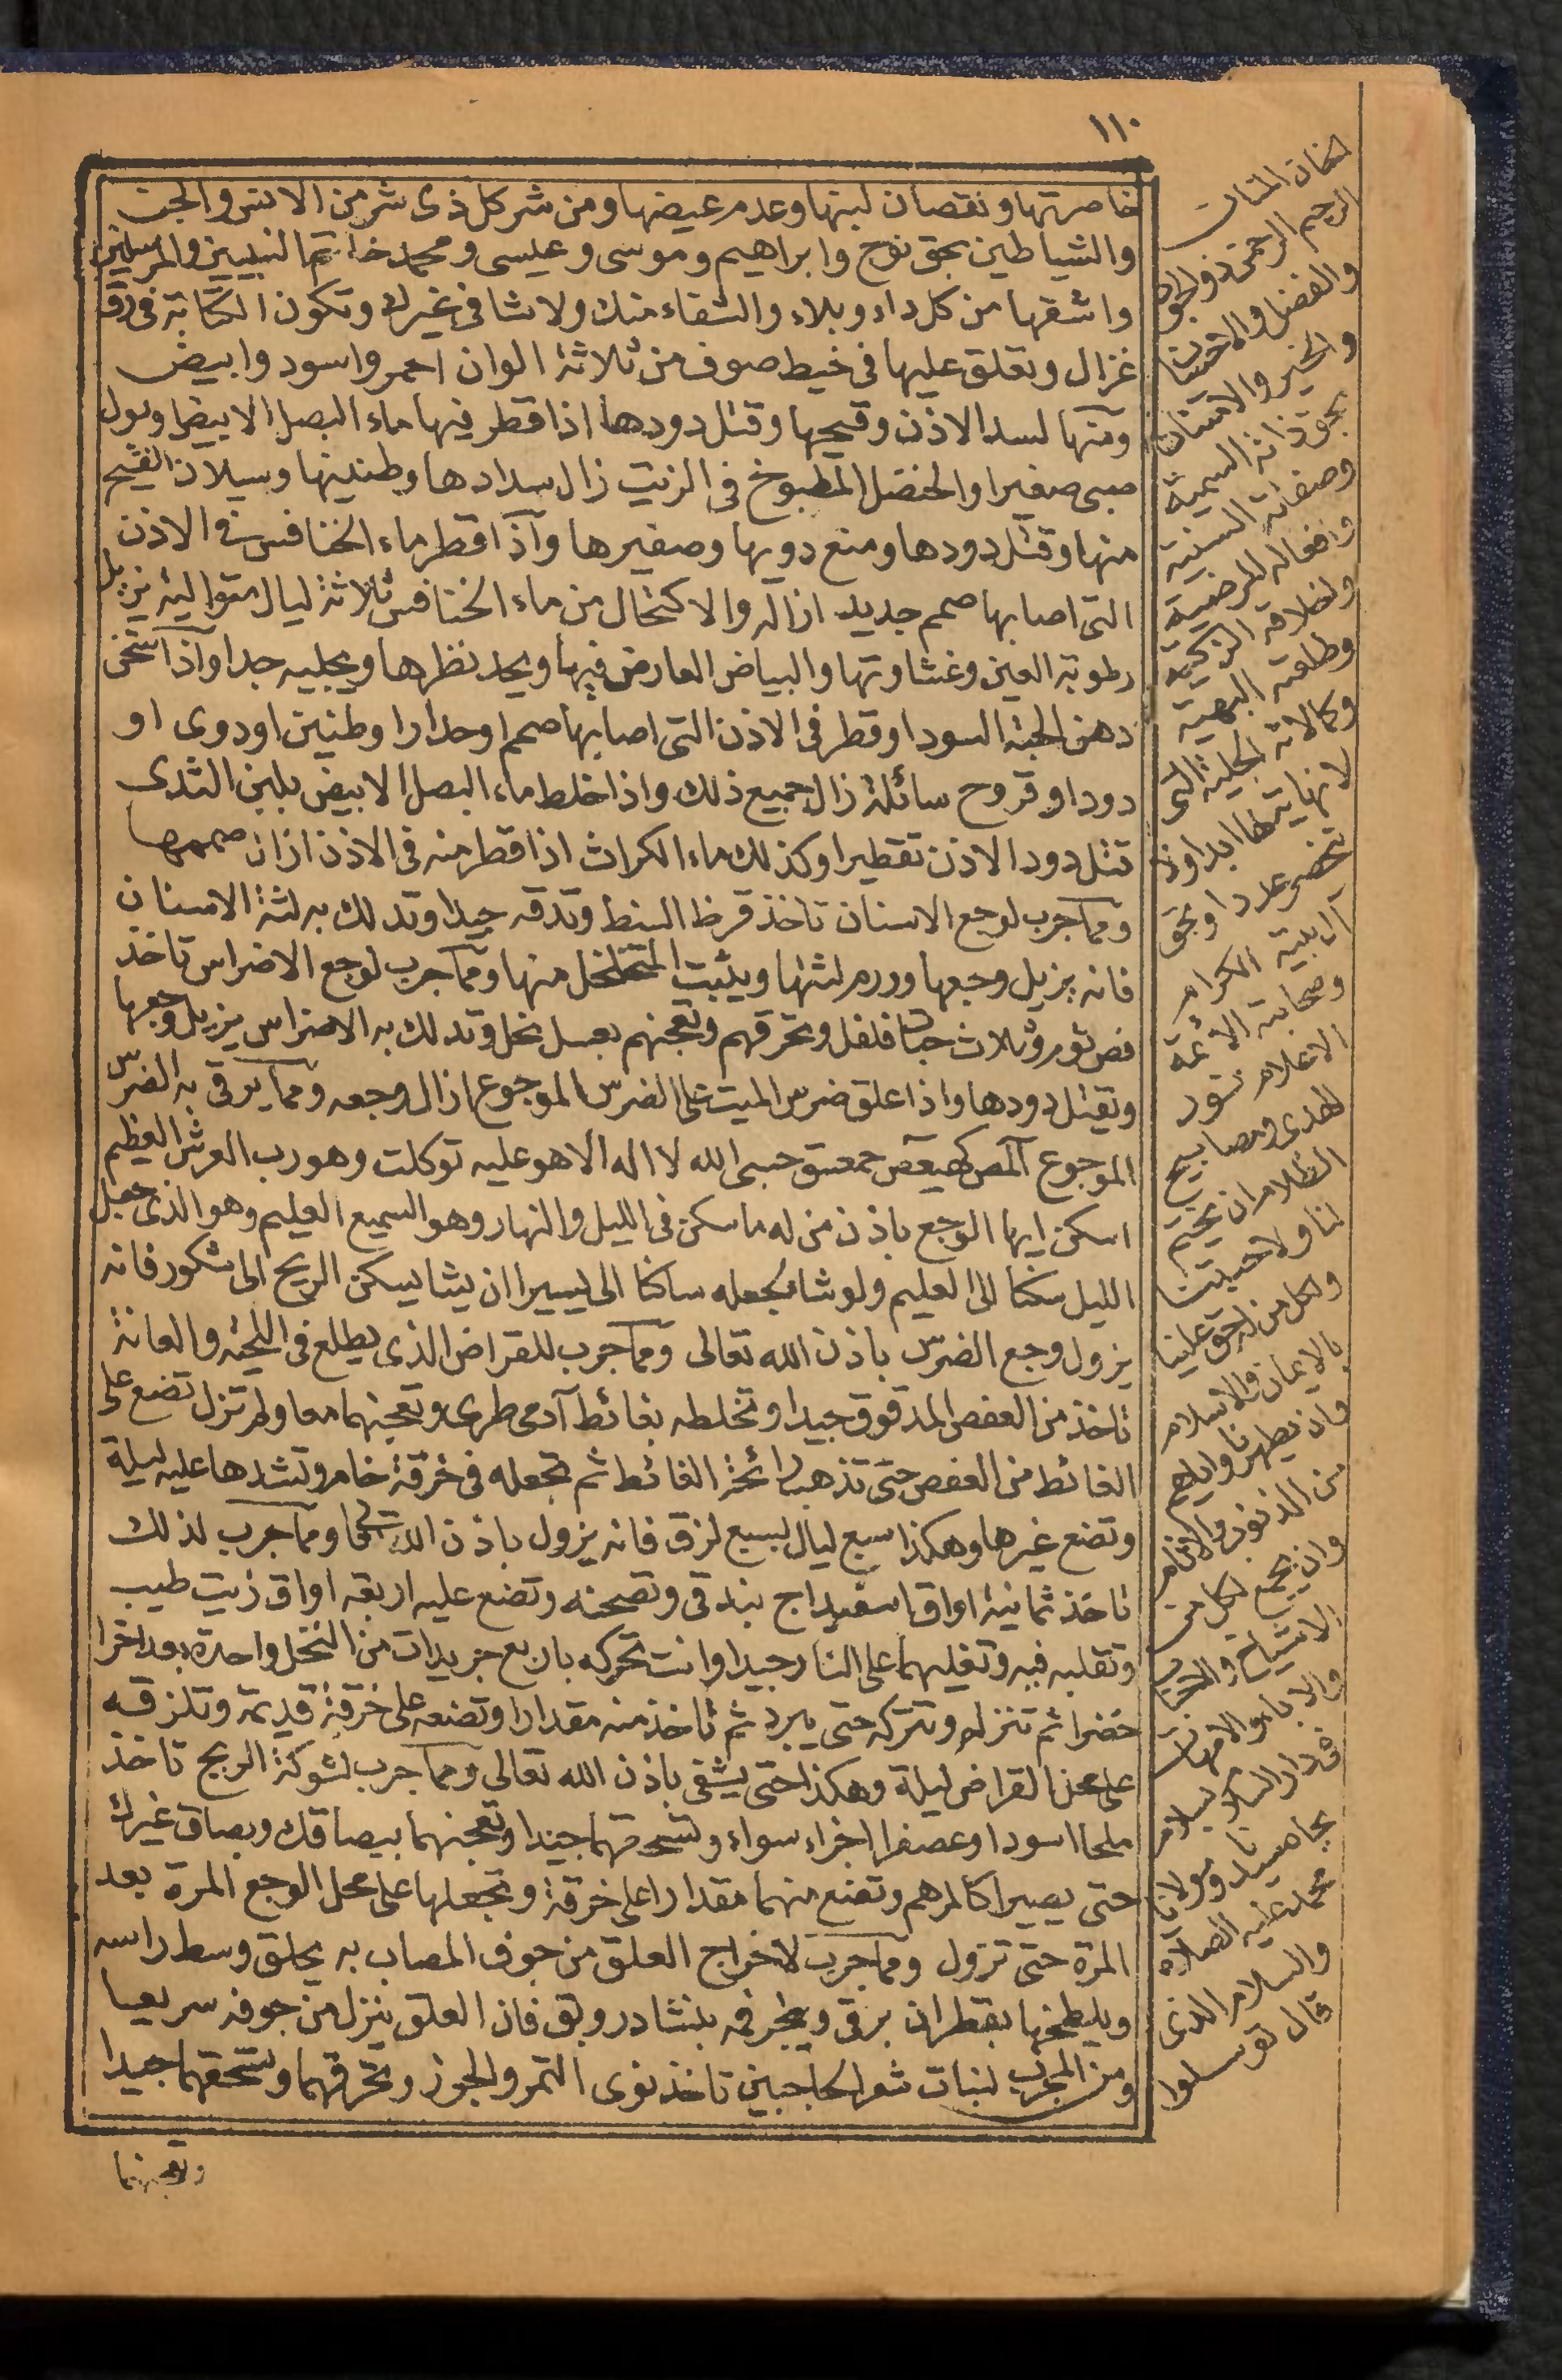 ١١٠
خاصرتها ونقصان لبنها وعدم عيضها ومن شر كل ذى شر من الانس والجن
والشياطين بحق نوح وابراهيم وموسى وعيسى ومحمد خاتم النبيين والمرسلين
واشفها من كل داء وبلاء والشفاء منك ولا شافى غيرك وتكون الكتابة فى رق
غزال وتعلق عليها فى خيط صوف من ثلاثة الوان احمر واسود وابيض
ومنها لسد الاذن وقيحها وقتل دودها اذا قطر فيها ماء البصل الابيض او بول
صبى صغير او الحنضل المطبوخ فى الزيت زال سدادها وطنينها وسيلان القيح
منها وقتل دودها ومنع دويها وصفيرها واذا قطر ماء الخنافس فى الاذن
التى اصابها صمم جديد ازاله والاكتحال من ماء الخنافس ثلاثة ليال متوالية يزيل
رطوبة العين وغشاوتها والبياض العارض فيها ويحد نظرها ويجليه جدا واذا سخن
دهن الحبة السودا وقطر فى الاذن التى اصابها صمم او حدارا وطنين او دوى او
دود او قروح سائلة زال جميع ذلك واذا خلط ماء البصل الابيض بلبن الثدى
قتل دود الاذن تقطيرا وكذلك ماء الكراث اذا قطر منه فى الاذن ازان صممها
ومما جرب لوجع الاسنان تاخذ قرظ السنط وتدقه جيدا وتدلك به لثة الاسنان
فانه يزيل وجعها وورم لثتها ويثبت المتخلخل منها ومما جرب لوجع الاضراس تاخذ
فص ثوم وثلاث حبات فلفل وتحرقهم وتعجنهم بعسل نخل وتدلك به الاضراس يزيل وجعها
وتقتل دودها واذا علق ضرس الميت على الضرس الموجوع ازال وجعه ومما يرقى به الضرس
الموجوع المص كهيعص حمعسق حسبى الله لا اله الا هو عليه توكلت وهو رب العرش العظيم
اسكن ايها الوجع باذن من له ما سكن فى الليل والنهار وهو السميع العليم وهو الذى جعل
الليل سكنا الى العليم ولو شاء لجعله ساكنا الى يسيرا ان يشا يسكن الريح الى شكور فانه
يزول وجع الضرس باذن الله تعالى ومما جرب للقراض الذى يطلع فى اللحية والعانة
تاخذ من العفص المدقوق جيدا وتخلطه بغائط آدمى طرى وتعجنهما معا ولم تزل تضع على
الغائط من العفص حتى تذهب رائحة الغائط ثم تجعله فى خرقة خام وتشدها عليه ليلة
وتضع غيرها وهكذا سبع ليال لسبع لزق فانه يزول باذن الله تعالى ومما جرب لذلك
تاخذ ثمانية اواق اسفيداج بندقى وتصحنه وتضع عليه اربعة اواق زيت طيب
وتقلبه فيه وتغليهما على النار جيدا وانت تحركه باربع جريدات من النخل واحدة بعد اخرا
خضرا ثم تنزله وتتركه حتى يبرد ثم تاخذ منه مقدارا وتضعه على خرقة قديمة وتلزقه
على محل القراض ليلة وهكذا حتى يشفى باذن الله تعالى ومما جرب لشوكة الريح تاخذ
ملحا اسودا وعصفرا اجزاء سواء وتسحقهما جيدا وتعجنهما ببصاقك وبصاق غيرك
حتى يصيرا كالمرهم وتضع منهما مقدارا على خرقة وتجعلها على محل الوجع المرة بعد
المرة حتى تزول ومما جرب لاخراج العلق من جوف المصاب به يحلق وسط راسه
ويلطخها بقطران برقى ويبخر فمه بنشادر وبق فان العلق ينزل من جوفه سريعا
ومن المجرب لنبات شعر الحاجبين تاخذ نوى التمر والجوز وتحرقهما وتسحقهما جيدا
وتعجنهما
الحنان المنان
الرحيم الرحمن ذو الجود
والفضل والاحسان
والخير والامتنان
بحق ذاته السمية
وصفاته السنية
وافعاله المرضية
واخلاقه الزكية
وطلعته البهية
وكمالاته الجلية التى
لا نهاية لها ابدا ولا
تحصى عددا وبحق
آل بيته الكرام
وصحابته الائمة
الاعلام بدور
الهدى ومصابيح
الظلام ان يختم
لنا ولاحبتنا
ولكل من له حق علينا
بالايمان والاسلام
وان يطهرنا واياهم
من الذنوب والاثام
وان يجمع لكل من
الاشياخ والاحباب
والاباء والامهات
فى دار السلام بسلام
بجاه سيدنا ومولانا
محمد عليه الصلاة
والسلام الذى
قال توسلوا